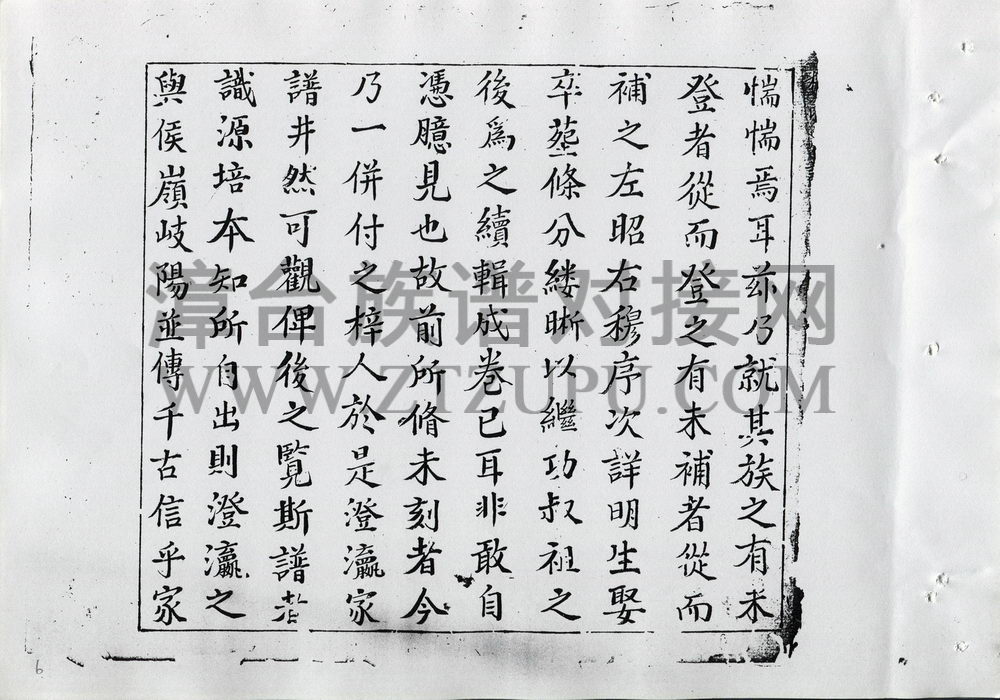 惴惴焉耳茲乃就其族之有未
登者從而登之有未補者從而
補之左昭右穆序次詳明生娶
卒塟條分縷晰以繼功叔祖之
後爲之續輯成卷已耳非敢自
憑臆見也故前所脩未刻者今
乃一併付之梓人於是澄瀛家
譜井然可觀俾後之覧斯譜者
識源培本知所自出則澄瀛之
與侯嶺岐陽並傳千古信乎家
漳台族谱对接网
WWW.ZTZUPU.COM
6